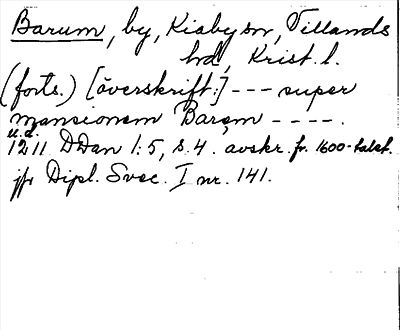 Barum, by, Kiaby sn, Villands
hd, Krist. l.
(forts.) [överskrift:] --- super
mansionem Baram ----.
u.d.
1211 DDan 1:5, s. 4. avskr. fr. 1600-talet.
jfr Dipl. Svec. I nr. 141.